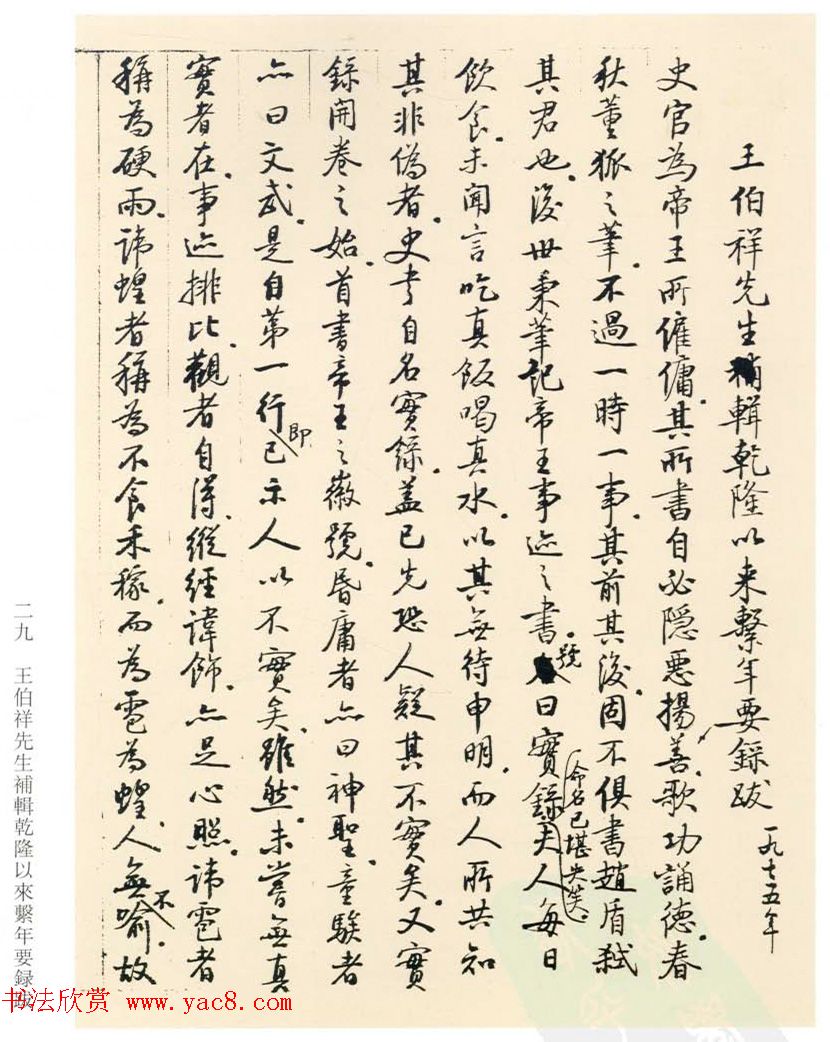 王伯祥先生補輯乾隆以来繫年要錄跋 一九七五年
史官為帝王所僱傭。其所書自必隐惡揚善、歌功誦德。春
秋董狐之筆。不過一時一事。其前其後。固不俱書趙盾弑
其君也。後世秉筆記帝王事迹之書。號曰實錄。命名已堪失笑。夫人每日
飲食。未聞言吃真飯喝真水。以其無待申明。而人所共知
其非偽者。史书自名實錄。盖已先恐人疑其不實矣。又實
錄開卷之始。首書帝王之徽號。昏庸者亦曰神聖。童騃者
亦曰文武。是自第一行即已示人以不實矣。雖然。未嘗無真
實者在。事迹排比。觀者自得。縱經諱飾。亦足心照。諱雹者
稱為硬雨。諱蝗者稱為不食禾稼。而為雹為蝗。人無不喻。故
二九 王伯祥先生補輯乾隆以來繫年要録跋
书法欣赏 www.yac8.com